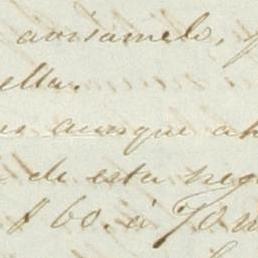 avisamelo,
ella.
aunque
de esta neg
$60. á 70 m